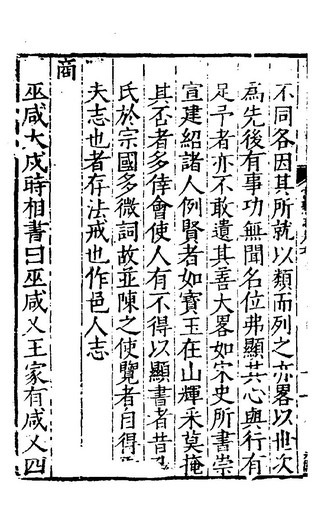 不同各因其所就以類而列之亦畧以世次
爲先後有事功無聞名位弗顯其心與行有
足予者亦不敢遺其善大畧如宋史所書崇
宣建紹諸人例賢者如寶玉在山輝采莫掩
其否者多倖會使人有不得以顯書者昔孔
氏於宗國多微詞故並陳之使覽者自得
夫志也者存法戒也作邑人志
商
巫咸大戊時相書曰巫咸乂王家有咸乂四